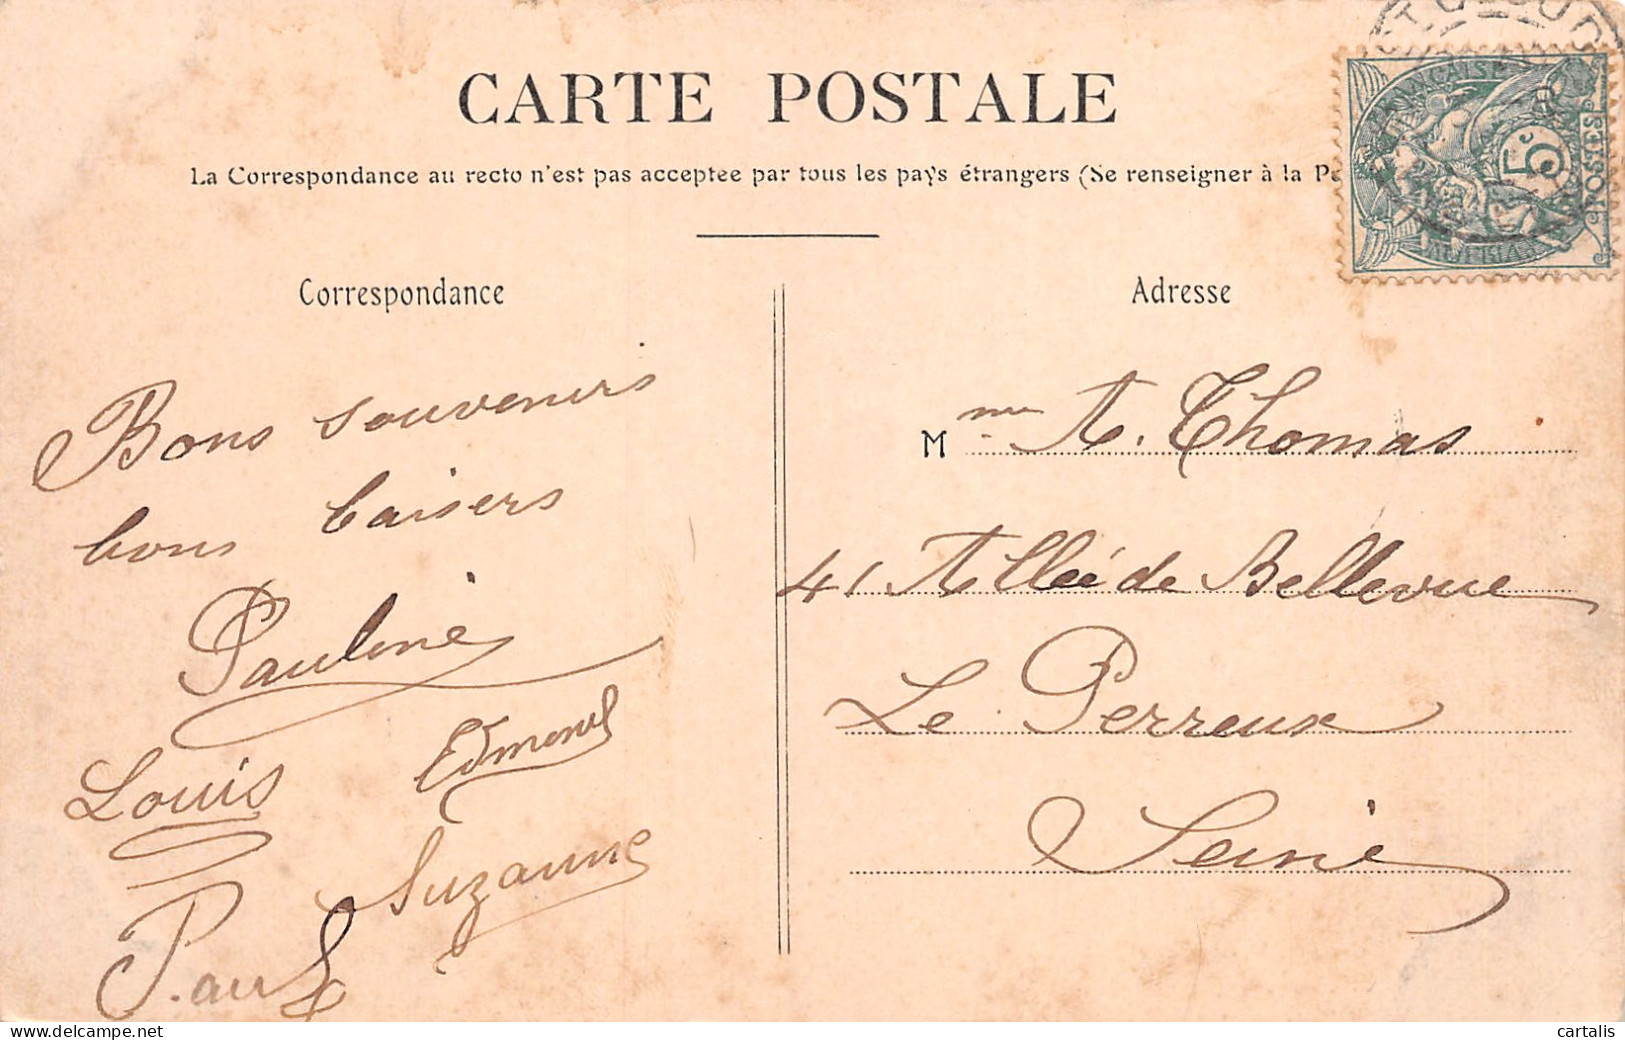 CARTE POSTALE
La Correspondance au recto n'est pas acceptee par tous les pays étrangers (Se renseigner à la
Correspondance
Bons souvenirs
bons baisers
Pauline
Louis Edmond
Suzanne
Paul
Adresse
Mme A. Thomas
41 Allée de Bellevue
Le Perreux
Seine
5c
POSTES
cartalis